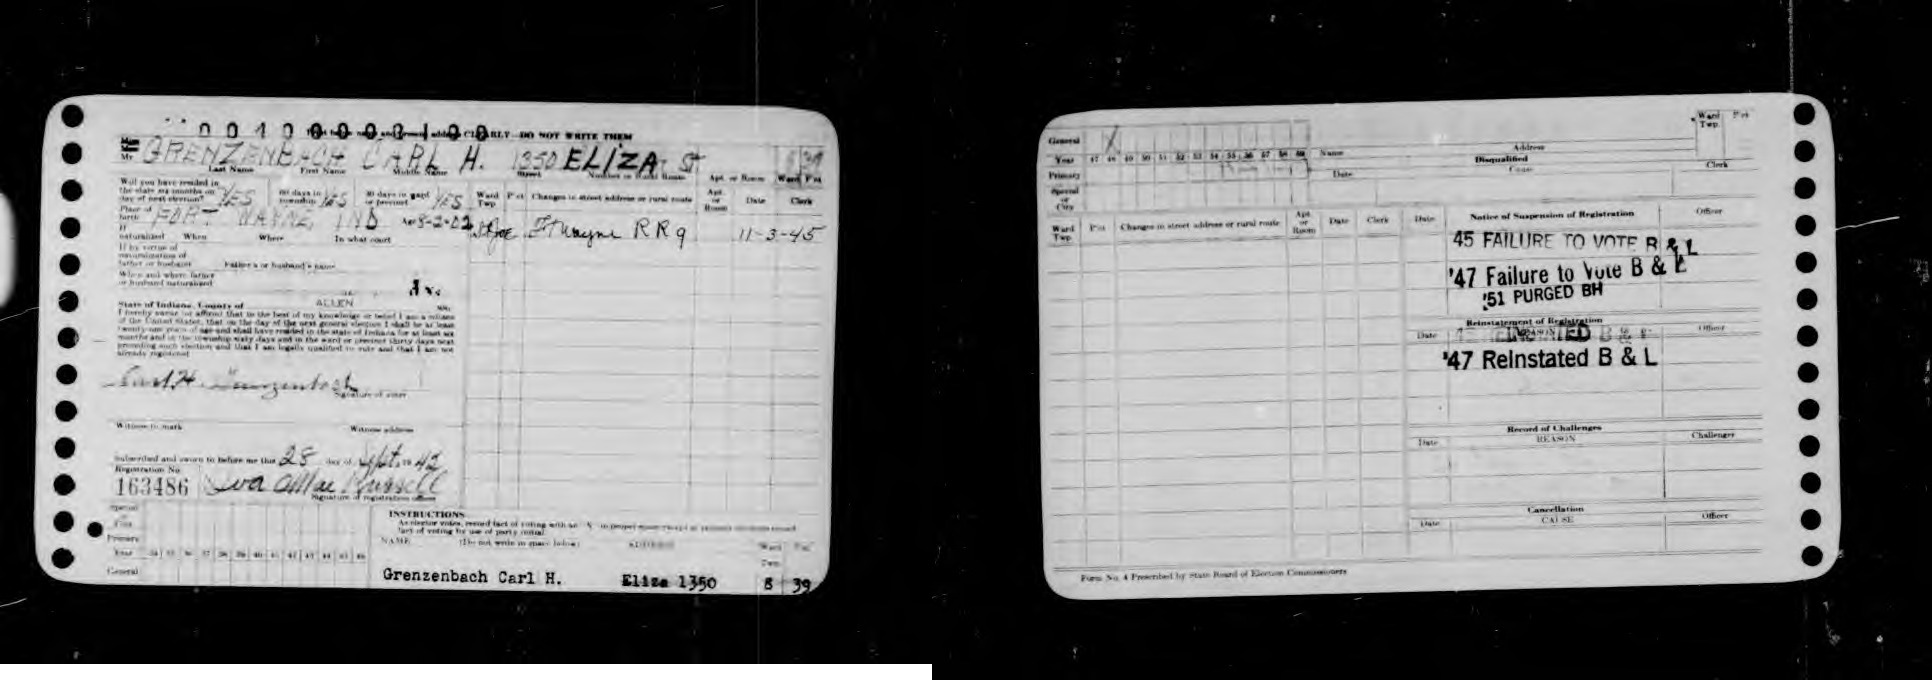 DO NOT WRITE THEM
Mr GRENZENBACH CARL H. 1350 ELIZA St 8 39
Last Name First Name Middle Name Street Number or Rural Route Apt. or Room Ward Pct
Will you have resided in
the state six months on
day of next election? YES
60 days in
township YES
30 days in ward
or precinct YES
Place of
birth FORT WAYNE, IND Age 8-2-02
If
naturalized When Where In what court
If by virtue of
naturalization of
father or husband Father's or husband's name
When and where father
or husband naturalized
State of Indiana, County of ALLEN ss:
I hereby swear (or affirm) that to the best of my knowledge or belief I am a citizen
of the United States, that on the day of the next general election I shall be at least
twenty-one years of age and shall have resided in the state of Indiana for at least six
months and in the township sixty days and in the ward or precinct thirty days next
preceding such election and that I am legally qualified to vote and that I am not
already registered
Carl H. Grenzenbach
Signature of voter
Witness to mark Witness address
Subscribed and sworn to before me this 28 day of Sept. 1942
Registration No.
163486
Iva Mae Russell
Signature of registration officer
Ward
Twp
Pct Changes in street address or rural route Apt.
or
Room Date Clerk
St Joe Ft Wayne R R 9 11-3-45
Special
City
Primary
Year 34 35 36 37 38 39 40 41 42 43 44 45 46
General
INSTRUCTIONS
As elector votes, record fact of voting with an X in proper space
fact of voting by use of party initial.
NAME (Do not write in space below) ADDRESS Ward
Twp. Pct
Grenzenbach Carl H. Eliza 1350 8 39
General X
Year 47 48 49 50 51 52 53 54 55 56 57 58 59
Primary
Special
or
City
Name Address Ward
Twp. Pct
Disqualified
Date Cause Clerk
Ward
Twp. Pct Changes in street address or rural route Apt.
or
Room Date Clerk
Date Notice of Suspension of Registration Officer
45 FAILURE TO VOTE B & L
'47 Failure to Vote B & L
'51 PURGED BH
Reinstatement of Registration
Date REASON Officer
'47 ReInstated B & L
Record of Challenges
Date REASON Challenger
Cancellation
Date CAUSE Officer
Form No. 4 Prescribed by State Board of Election Commissioners